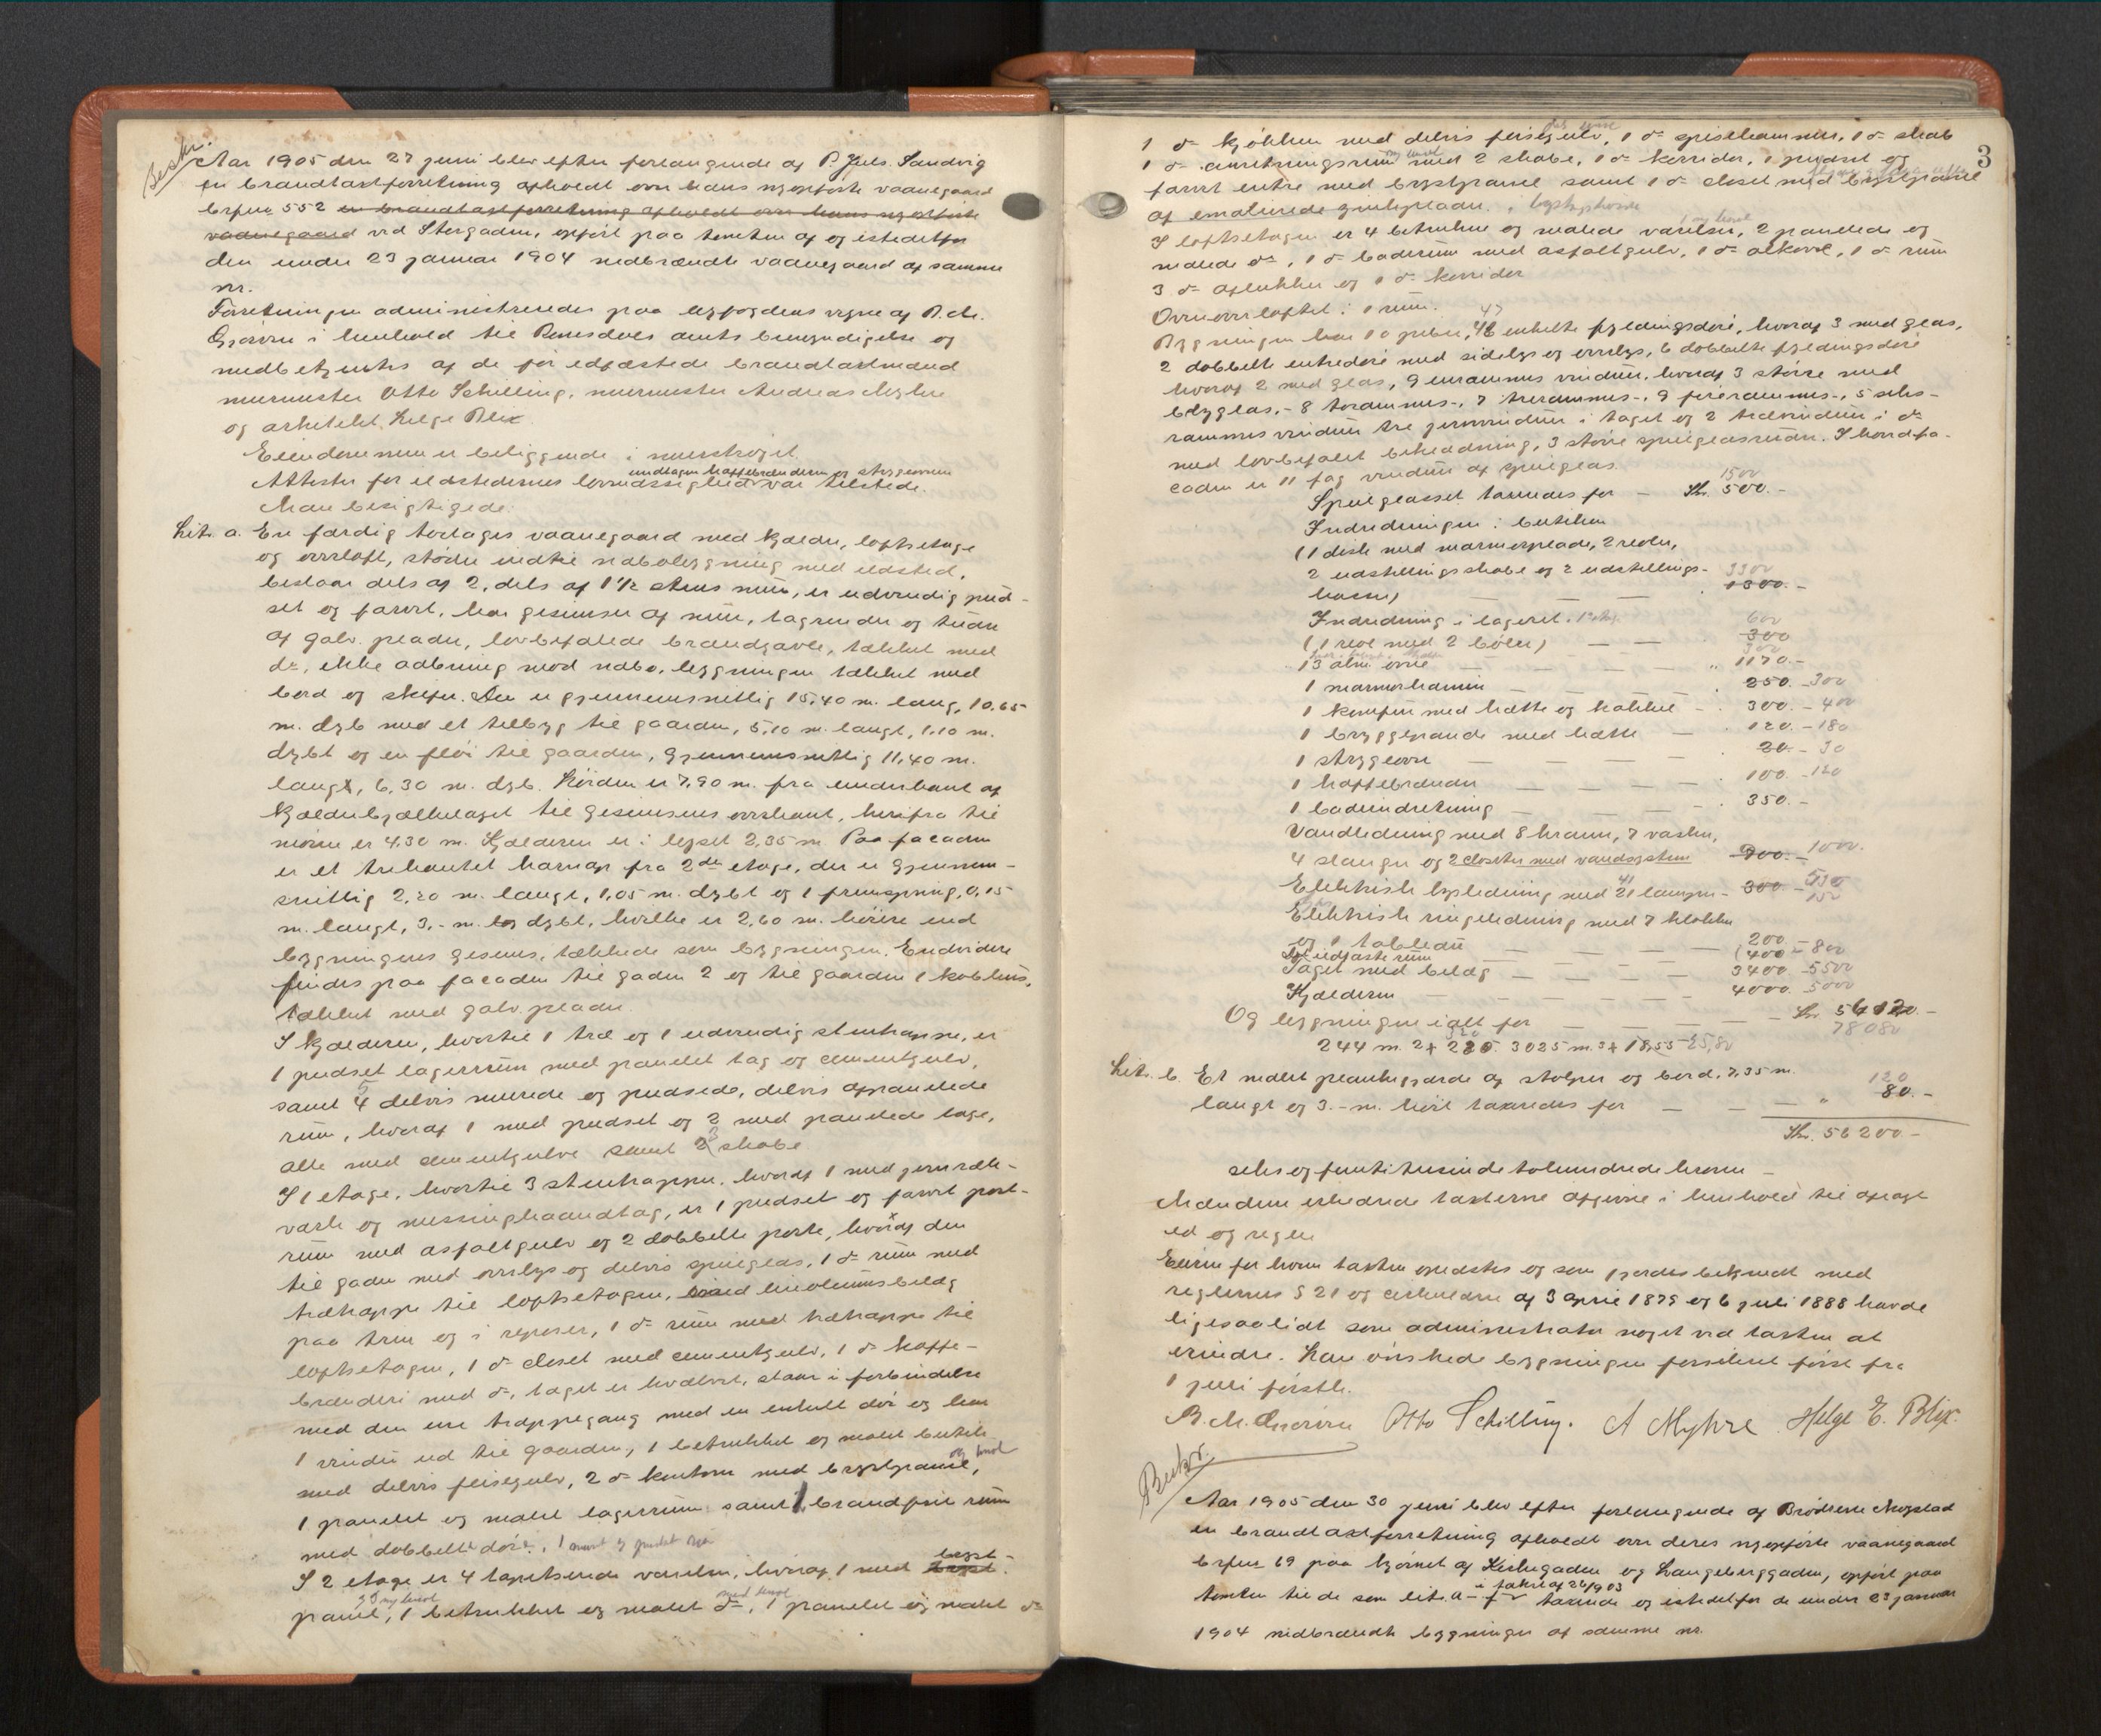 Beskr.
Aar 1905 den 27 juni blev efter forlangende af P. Juls. Sandvig
en brandtaxtforretning afholdt over hans nyopførte vaanegaard
brfno 552 en brandtaxtforretning afholdt over hans nyopførte
vaanegaard ved Storgaden, opført paa tomten af og istedetfor
den under 23 januar 1904 nedbrændte vaanegaard af samme
nr.
Forretningen administreredes paa byfogdens vegne af B. M.
i henhold til Romsdals amts bemyndigelse og
medbetjentes af de før edfæstede brandtaxtmænd
murmester Otto Schilling, murmester Andreas Myhre
og arkitekt Helge Blix.
Eiendommen er beliggende i murstrøget.
undtagen kaffebrænderen og strygeovnen
Attester for ildstedernes lovmæssighed var tilstede.
Man besigtigede:
Lit. a. En færdig toetages vaanegaard med kjælder, loftsetage
og overloft, støder indtil nabobygning med ildsted,
bestaar dels af 2, dels af 1 1/2 stens mur, er udvendig pud-
set og farvet, har gesimser af mur, tagrender og
af galv. plader, lovbefalede brandgavle, tækket med
do, ikke aabning mod nabo, bygningen tækket med
bord og skifer. Den er gjennemsnitlig 15,40 m. lang, 10,65
m. dyb med et tilbyg til gaarden, 5,10 m. langt, 1,10 m.
dybt og en fløi til gaarden, gjennemsnitlig 11,40 m.
langt, 6,30 m. dyb. Høiden er 7,90 m. fra underkant af
kjælderbjælkelaget til gesimsens overkant, herifra til
mønne er 4,30 m. Kjælderen er i lyset 2,35 m. Paa facaden
er et trekantet karnap fra 2den etage, der er gjennem-
snitlig 2,20 m. langt, 1,05 m. dybt og 1 fremspring, 0,15
m. langt, 3,- m. dybt, hvilke er 2,60 m. høiere end
bygningens gesims, tækkede som bygningen. Endvidere
findes paa facaden til gaden 2 og til gaarden 1 kobhus,
tækket med galv. plader.
I kjælderen, hvortil 1 træ og 1 udvendig stentrappe, er
1 pudset lagerrum med panelet tag og cementgulv,
samt 4 5 delvis murede og pudsede, delvis afpanelede
rum, hvoraf 1 med pudset og 2 med panelede tage,
alle med cementgulve samt 2 3 skabe
I 1 etage, hvortil 3 stentrapper, hvoraf 1 med jernræk-
værk og messinghaandtag, er 1 pudset og farvet port-
rum med asfaltgulv og 2 dobbelte porte, hvoraf den
til gaden med overlys og delvis speilglas, 1 do rum med
trætrappe til loftsetagen, med linoleumsbelæg
paa trin og i reposer, 1 do rum med trætrappe til
loftsetagen, 1 do closet med cementgulv, 1 do kaffe-
brænderi med do, taget er hvælvet, staar i forbindelse
med den ene trappegang med en enkelt dør og har
1 vindu ud til gaarden, 1 betrukket og malet butik
med delvis flisegulv, 2 do kontorer med brystpanel,
1 panelet og malet lagerrum samt 1 brandfrit rum
med dobbelt dør.
I 2 etage er 4 tapetserede værelser, hvoraf 1 med bryst-
panel, 1 betrukket og malet do, 1 panelet og malet do
3
1 do kjøkken med delvis flisegulv, 1 do spisekammer, 1 do skab
1 do anretningsrum med 2 skabe, 1 do korridor, 1 pudset og
farvet entre med brystpanel samt 1 do closet med brystpanel
af emalierede zinkplader.
I loftsetagen er 4 betrukne og malede værelser, 2 panelede og
malede do, 1 do baderum med asfaltgulv, 1 do alkove, 1 do rum
3 do aflukker og 1 do korridor
Overoverloftet: 1 rum.
Bygningen har 10 piber, 48 47 enkelte fyldingsdøre, hvoraf 3 med glas,
2 dobbelte entredøre med sidelys og overlys, 6 dobbelte fyldingsdøre
hvoraf 2 med glas, 9 enrammes vinduer, hvoraf 3 større med
blyglas,- 8 torammes-, 7 trerammes-, 9 firerammes-, 5 seks-
rammes vinduer tre jernvinduer i taget og 2 trævinduer i do
med lovbefalet beklædning, 3 større speilglasruder. I hovedfa-
caden er 11 fag vinduer af speilglas.
Speilglasset taxeredes for - Kr. 500.- 1500
Indredningen i butiken
(1 disk med marmorplade, 2 reoler,
2 udstillingsskabe og 2 udstillings-
kasser) — — — 1300.- 3300
Indredning i lageret.
(1 reol med 2 bøler) — — 300 600
13 alm. ovne — — — " 1170.-
1 marmorkamin — — 250.- 300
1 komfur med hætte og kokekar - 300.- 400
1 bryggepande med hætte — 120.- 180
1 strygeovn — — — 20.- 30
1 kaffebrænder — — — 100.- 120
1 badeindretning — — — 350.-
Vandledning med 8 kraner, 7 vasker,
4 slanger og 2 closeter med vandsystem 900.- 1000.
Elektrisk lysledning med 21 41 lamper - 300.-
Elektrisk ringeledning med 7 klokker 150
og 1 tableau — — — 200.-
Det ildfaste rum — — — 400 - 800
Taget med belæg — — — 3400. 5500
Kjælderen — — — 4000. 5000
Og bygningen ialt for — — — Kr. 56120.-
78080
Lit. b. Et malet plankegjærde af stolper og bord, 7,35 m.
langt og 3.- m. høit taxeredes for — — — " 80.- 120
Kr. 56200.-
seks og femti tusinde tohundrede kroner —
Mændene erklærede taxterne afgivne i henhold til aflagt
ed og regler
Eieren for hvem taxten oplæstes og som gjordes bekjendt med
reglernes § 21 og cirkulære af 3 april 1879 og 6 juli 1888 havde
ligesaalidt som administrator noget ved taxten at
erindre. Han ønskede bygningen forsikret først fra
1 juli førstk.
Otto Schilling. A Myhre Helge E. Blix.
Beskr.
Aar 1905 den 30 juni blev efter forlangende af Brødrene
en brandtaxtforretning afholdt over deres nyopførte vaanegaard
brfno 69 paa hjørnet af Kirkegaden og opført paa
tomten til de som lit. a - f i takst af taxerede og istedetfor de under 23 januar
1904 nedbrændte bygninger af samme nr.